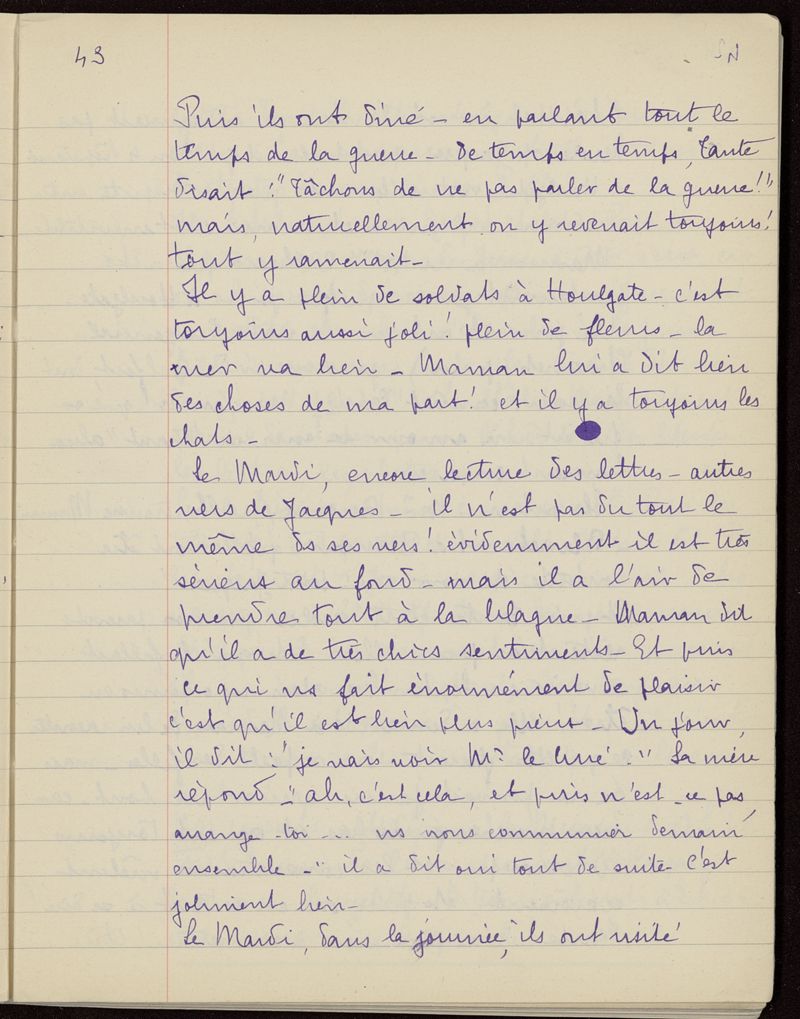 43
Puis ils ont dîné - en parlant tout le
temps de la guerre - De temps en temps, Tante
disait : "Tâchons de ne pas parler de la guerre !!"
mais, naturellement on y revenait toujours !
tout y ramenait -
Il y a plein de soldats à Houlgate - c'est
toujours aussi joli ! plein de fleurs - la
mer va bien - Maman lui a dit bien
des choses de ma part ! et il y a toujours les
chats -
Le Mardi, encore lecture des lettres - autres
vers de Jacques - il n'est pas du tout le
même ds ses vers ! évidemment il est très
sérieux au fond - mais il a l'air de
prendre tout à la blague - Maman dit
qu'il a de très chics sentiments - Et puis
ce qui ns fait énormément de plaisir
c'est qu'il est bien plus pieux - Un jour,
il dit : "je vais voir Mr le Curé." Sa mère
répond - "ah, c'est cela, et puis n'est-ce pas,
arrange-toi ... ns communier demain
ensemble -" il a dit oui tout de suite - C'est
joliment bien -
Le Mardi, dans la journée, ils ont visité